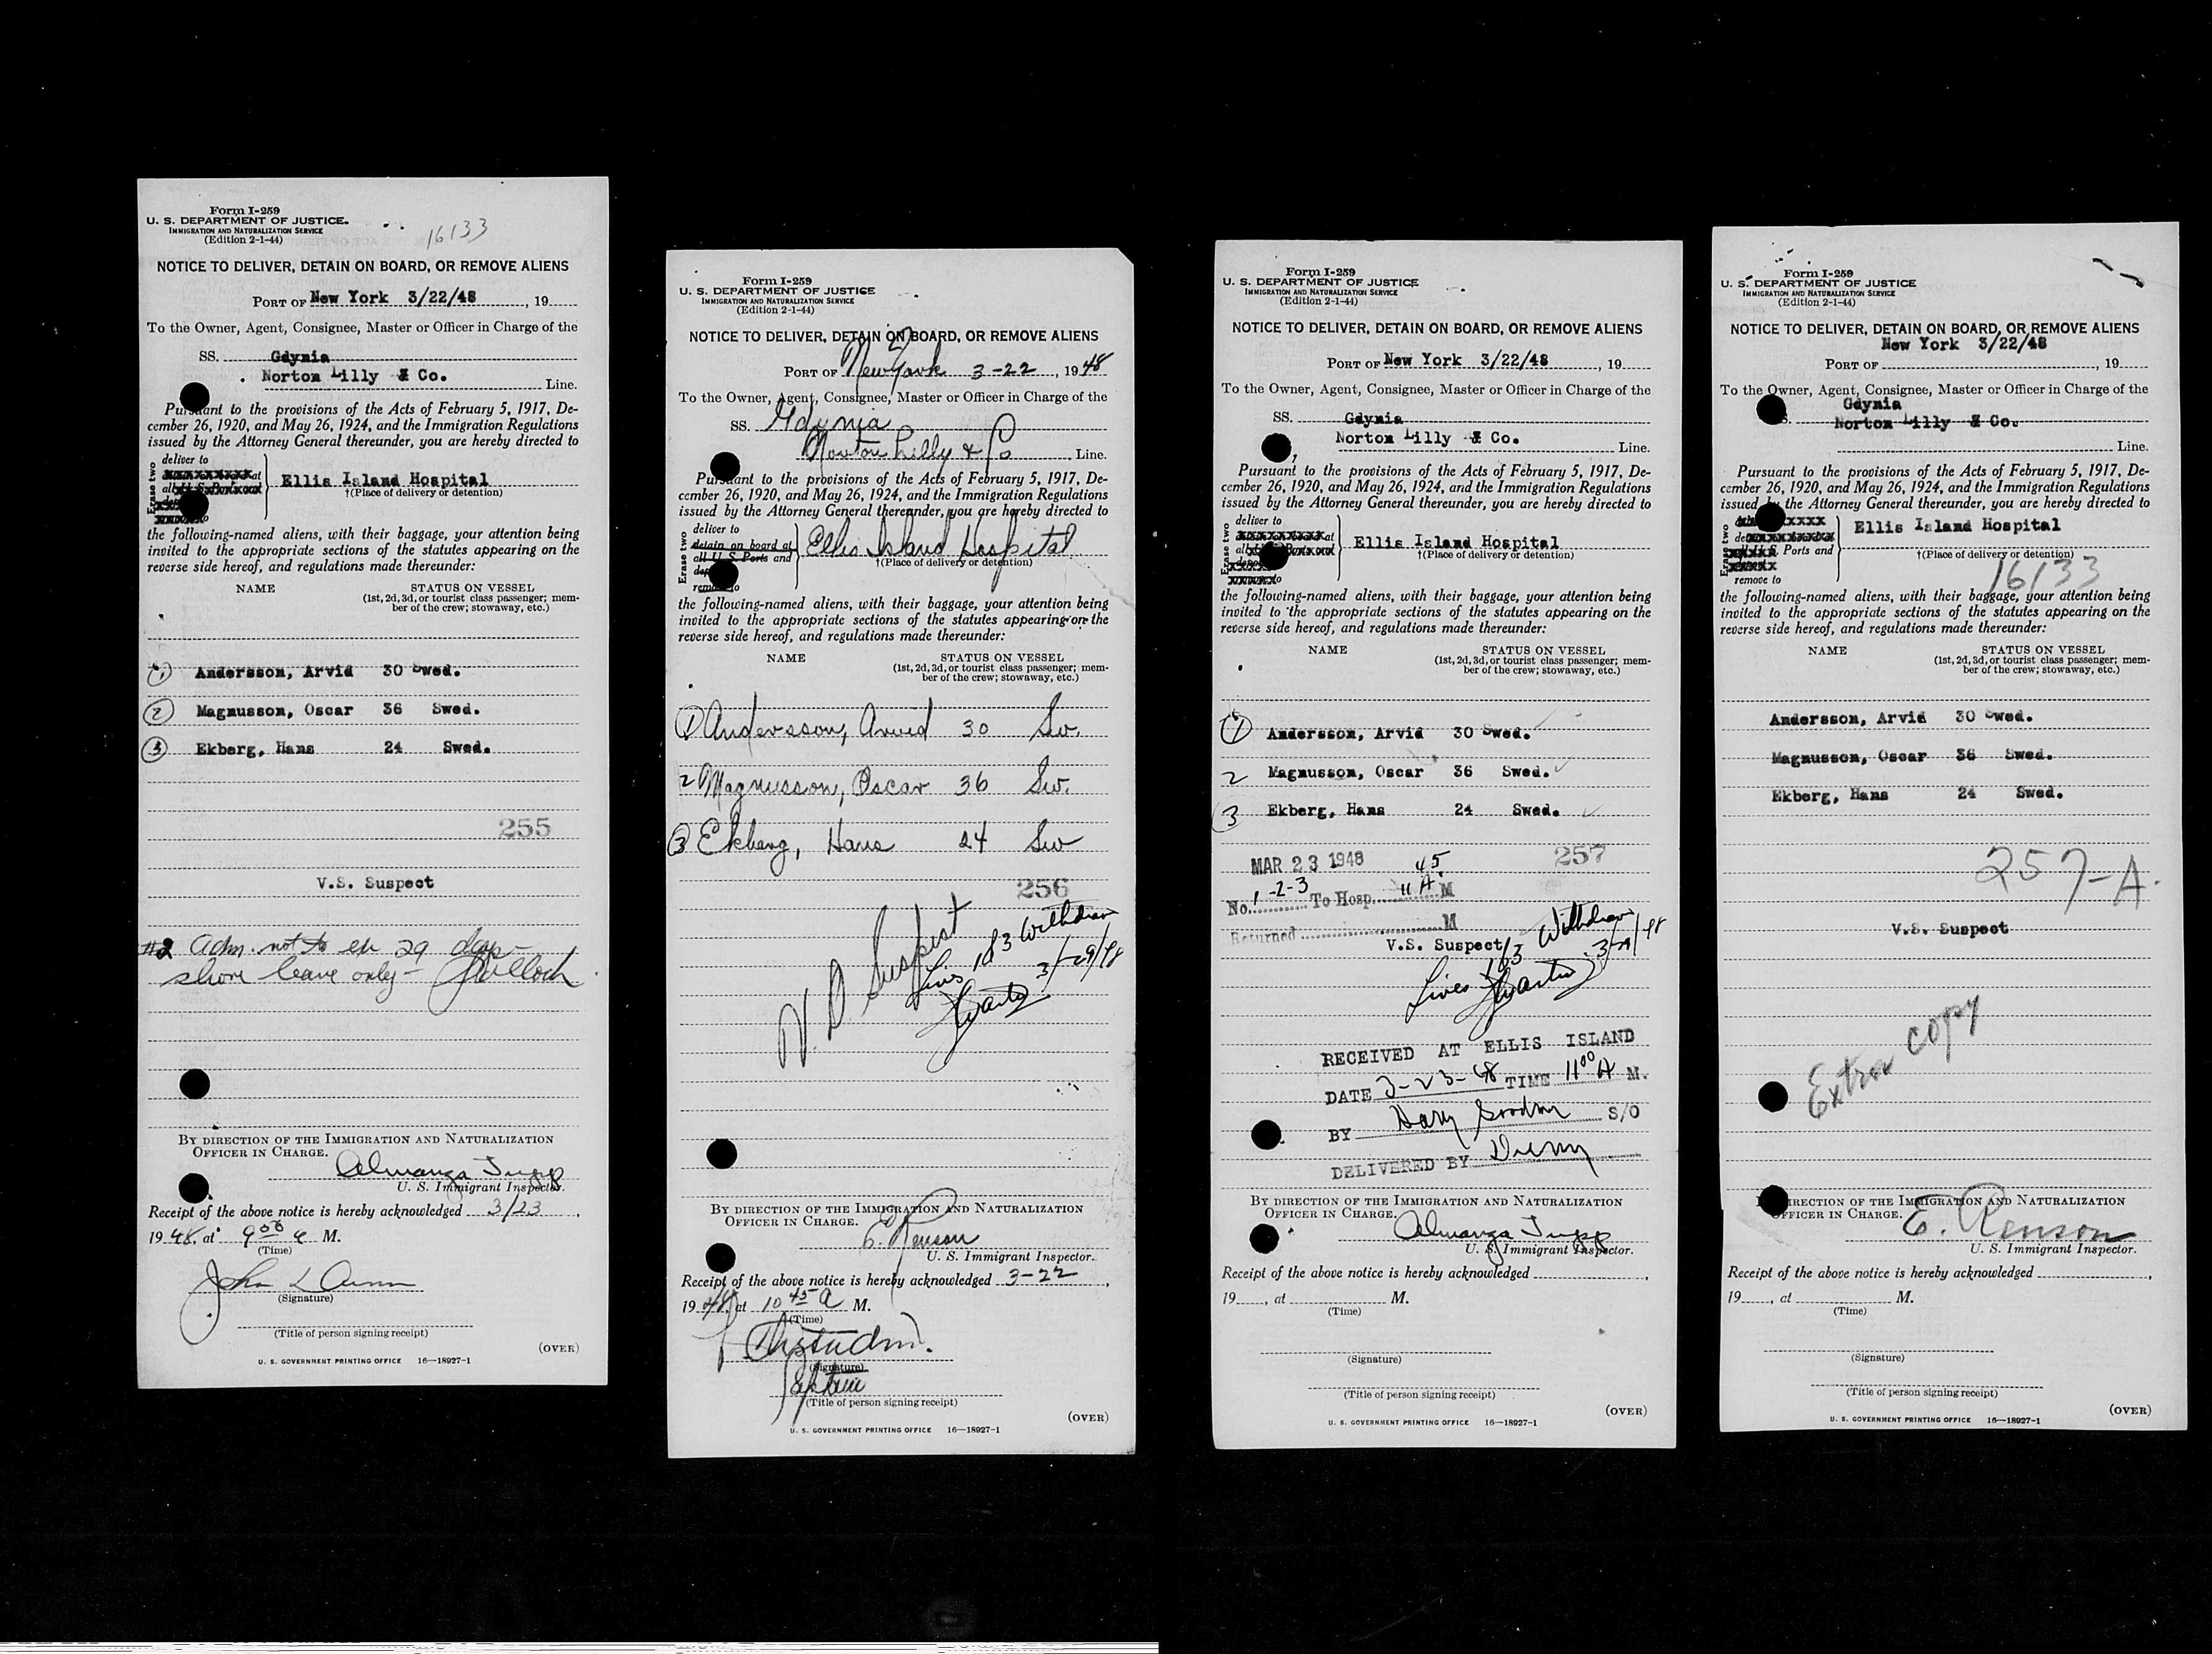 Form I-259
U. S. DEPARTMENT OF JUSTICE
IMMIGRATION AND NATURALIZATION SERVICE
(Edition 2-1-44)
16133
NOTICE TO DELIVER, DETAIN ON BOARD, OR REMOVE ALIENS
PORT OF New York 3/22/48, 19
To the Owner, Agent, Consignee, Master or Officer in Charge of the
SS. Gdynia
Norton Lilly & Co. Line.
Pursuant to the provisions of the Acts of February 5, 1917, De-
cember 26, 1920, and May 26, 1924, and the Immigration Regulations
issued by the Attorney General thereunder, you are hereby directed to
Erase two
deliver to
at
Ellis Island Hospital
†(Place of delivery or detention)
the following-named aliens, with their baggage, your attention being
invited to the appropriate sections of the statutes appearing on the
reverse side hereof, and regulations made thereunder:
NAME STATUS ON VESSEL
(1st, 2d, 3d, or tourist class passenger; mem-
ber of the crew; stowaway, etc.)
1 Andersson, Arvid 30 Swed.
2 Magnusson, Oscar 36 Swed.
3 Ekberg, Hans 24 Swed.
255
V.S. Suspect
#2 Adm. not to ex 29 days
shore leave only -
BY DIRECTION OF THE IMMIGRATION AND NATURALIZATION
OFFICER IN CHARGE.
Almanza Tupp
U. S. Immigrant Inspector.
Receipt of the above notice is hereby acknowledged 3/23,
1948, at 9 M.
(Time)
John L
(Signature)
(Title of person signing receipt)
(OVER)
U. S. GOVERNMENT PRINTING OFFICE 16—18927-1
Form I-259
U. S. DEPARTMENT OF JUSTICE
IMMIGRATION AND NATURALIZATION SERVICE
(Edition 2-1-44)
NOTICE TO DELIVER, DETAIN ON BOARD, OR REMOVE ALIENS
PORT OF New York 3-22, 1948
To the Owner, Agent, Consignee, Master or Officer in Charge of the
SS. Gdynia
Norton Lilly & Co Line.
Pursuant to the provisions of the Acts of February 5, 1917, De-
cember 26, 1920, and May 26, 1924, and the Immigration Regulations
issued by the Attorney General thereunder, you are hereby directed to
Erase two
deliver to
detain on board at
all U. S. Ports and
remove to
Ellis Island Hospital
†(Place of delivery or detention)
the following-named aliens, with their baggage, your attention being
invited to the appropriate sections of the statutes appearing on the
reverse side hereof, and regulations made thereunder:
NAME STATUS ON VESSEL
(1st, 2d, 3d, or tourist class passenger; mem-
ber of the crew; stowaway, etc.)
1 Andersson, Arvid 30 Sw.
2 Magnusson, Oscar 36 Sw.
3 Ekberg, Hans 24 Sw
256
V. D. Suspect
1 & 3 Withdrawn
3/29/48
BY DIRECTION OF THE IMMIGRATION AND NATURALIZATION
OFFICER IN CHARGE.
E. Renson
U. S. Immigrant Inspector.
Receipt of the above notice is hereby acknowledged 3-22,
1948, at 10 45 A M.
(Time)
(Signature)
(Title of person signing receipt)
(OVER)
U. S. GOVERNMENT PRINTING OFFICE 16—18927-1
Form I-259
U. S. DEPARTMENT OF JUSTICE
IMMIGRATION AND NATURALIZATION SERVICE
(Edition 2-1-44)
NOTICE TO DELIVER, DETAIN ON BOARD, OR REMOVE ALIENS
PORT OF New York 3/22/48, 19
To the Owner, Agent, Consignee, Master or Officer in Charge of the
SS. Gdynia
Norton Lilly & Co. Line.
Pursuant to the provisions of the Acts of February 5, 1917, De-
cember 26, 1920, and May 26, 1924, and the Immigration Regulations
issued by the Attorney General thereunder, you are hereby directed to
Erase two
deliver to
at
Ellis Island Hospital
†(Place of delivery or detention)
the following-named aliens, with their baggage, your attention being
invited to the appropriate sections of the statutes appearing on the
reverse side hereof, and regulations made thereunder:
NAME STATUS ON VESSEL
(1st, 2d, 3d, or tourist class passenger; mem-
ber of the crew; stowaway, etc.)
1 Andersson, Arvid 30 Swed.
2 Magnusson, Oscar 36 Swed.
3 Ekberg, Hans 24 Swed.
257
MAR 23 1948
No. 1-2-3 To Hosp. 11 45 A. M
Returned M
V.S. Suspect
1 & 3 Withdrawn
3/29/48
RECEIVED AT ELLIS ISLAND
DATE 3-23-48 TIME 11 00 A M.
BY S/O
DELIVERED BY
BY DIRECTION OF THE IMMIGRATION AND NATURALIZATION
OFFICER IN CHARGE.
Almanza Tupp
U. S. Immigrant Inspector.
Receipt of the above notice is hereby acknowledged ,
19, at M.
(Time)
(Signature)
(Title of person signing receipt)
(OVER)
U. S. GOVERNMENT PRINTING OFFICE 16—18927-1
Form I-259
U. S. DEPARTMENT OF JUSTICE
IMMIGRATION AND NATURALIZATION SERVICE
(Edition 2-1-44)
NOTICE TO DELIVER, DETAIN ON BOARD, OR REMOVE ALIENS
New York 3/22/48
PORT OF , 19
To the Owner, Agent, Consignee, Master or Officer in Charge of the
Gdynia
Norton Lilly & Co.
Line.
Pursuant to the provisions of the Acts of February 5, 1917, De-
cember 26, 1920, and May 26, 1924, and the Immigration Regulations
issued by the Attorney General thereunder, you are hereby directed to
Erase two
Ports and
remove to
Ellis Island Hospital
†(Place of delivery or detention)
16133
the following-named aliens, with their baggage, your attention being
invited to the appropriate sections of the statutes appearing on the
reverse side hereof, and regulations made thereunder:
NAME STATUS ON VESSEL
(1st, 2d, 3d, or tourist class passenger; mem-
ber of the crew; stowaway, etc.)
Andersson, Arvid 30 Swed.
Magnusson, Oscar 36 Swed.
Ekberg, Hans 24 Swed.
257-A.
V.S. Suspect
Extra copy
DIRECTION OF THE IMMIGRATION AND NATURALIZATION
OFFICER IN CHARGE.
E. Renson
U. S. Immigrant Inspector.
Receipt of the above notice is hereby acknowledged ,
19, at M.
(Time)
(Signature)
(Title of person signing receipt)
(OVER)
U. S. GOVERNMENT PRINTING OFFICE 16—18927-1